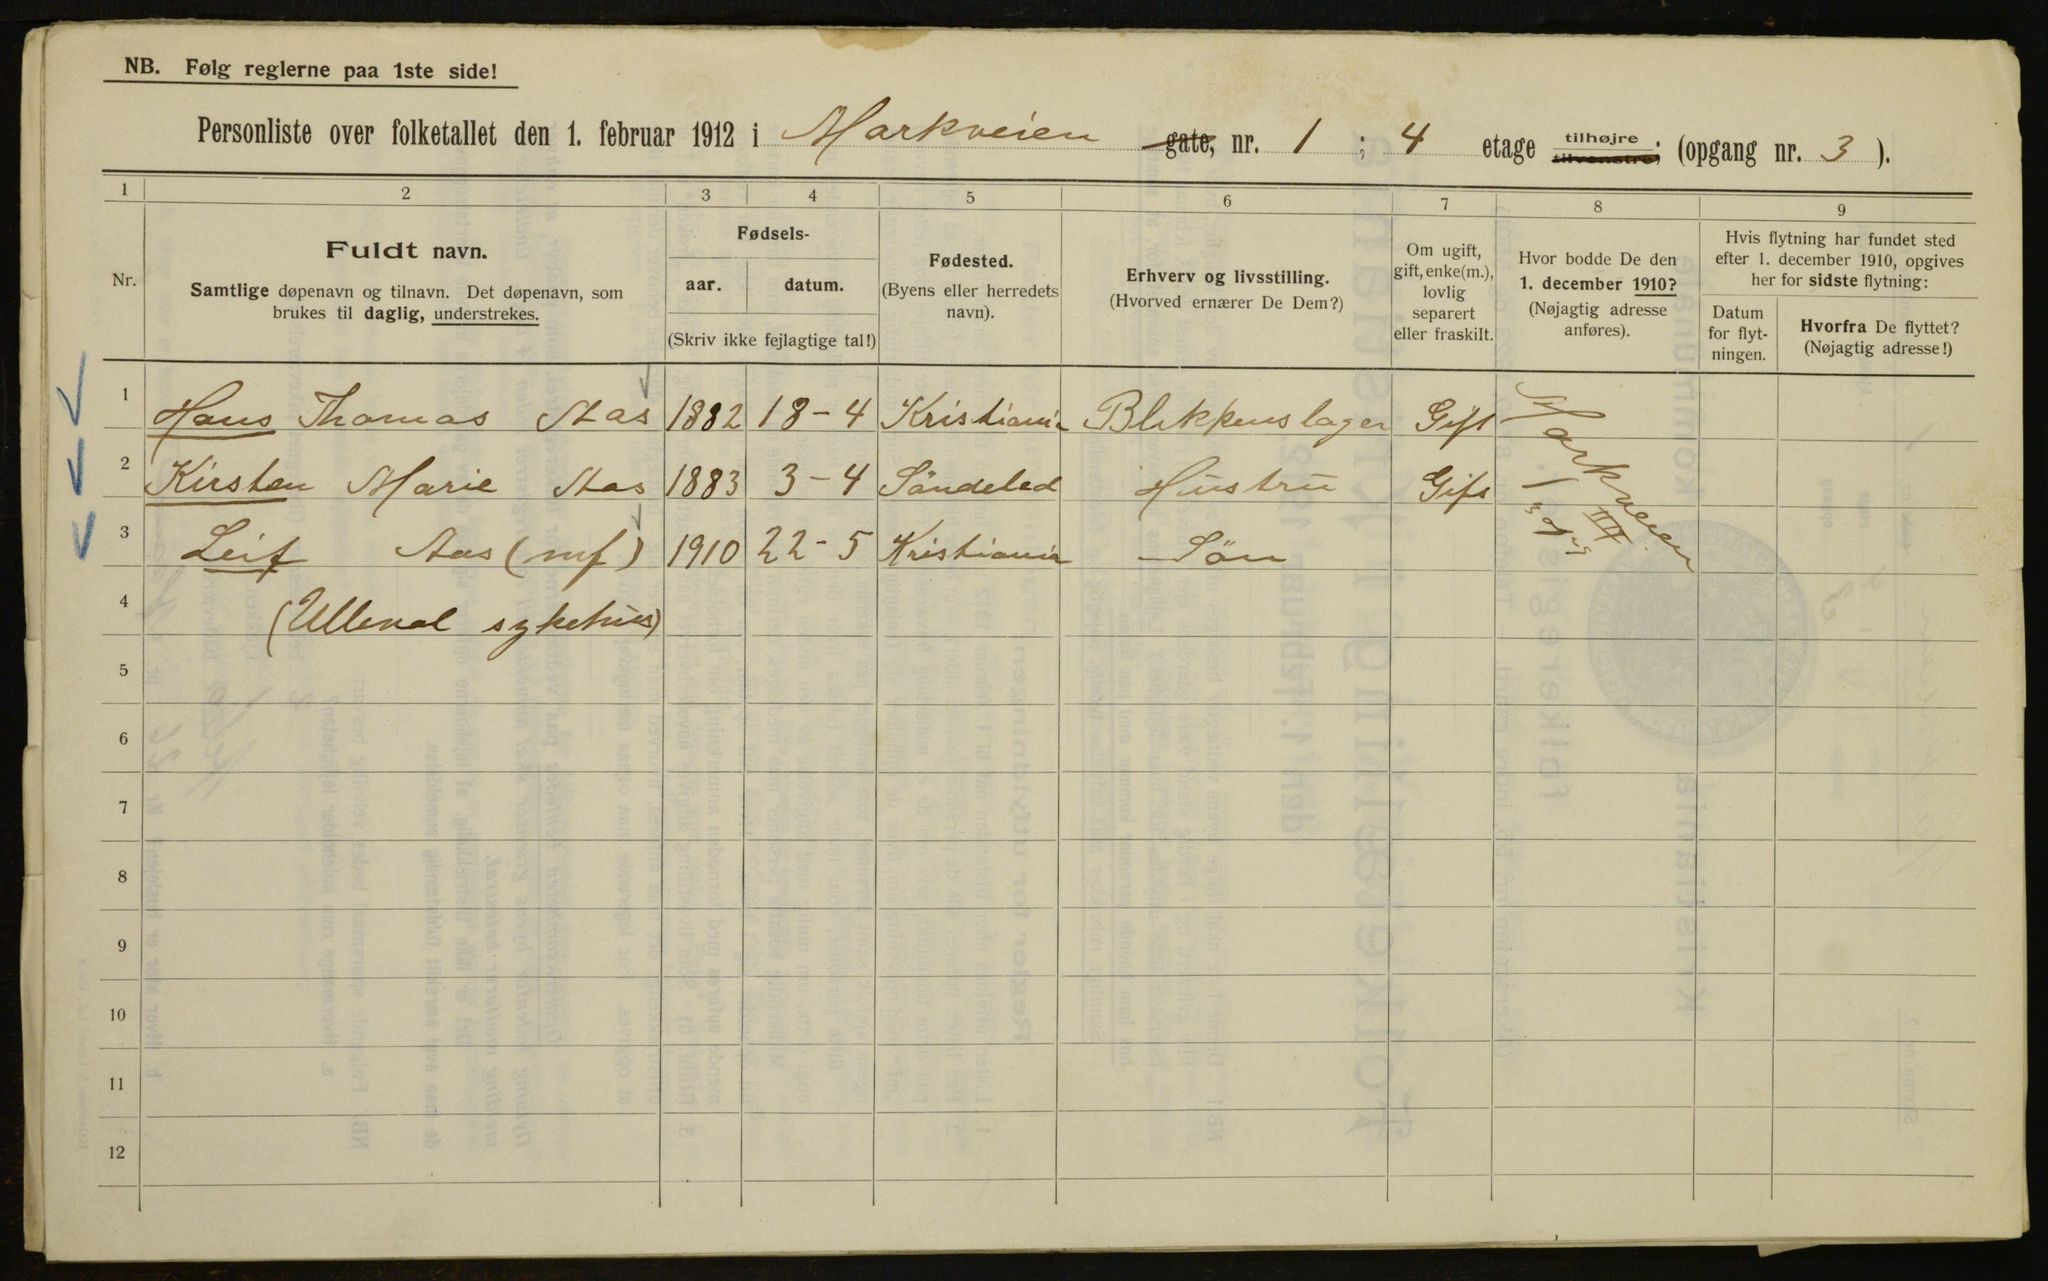 NB. Følg reglerne paa 1ste side!
Personliste over folketallet den 1. februar 1912 i Markveien gate, nr. 1 ; 4 etage tilhøjre tilvenstre, (opgang nr. 3 ).
1 2 3 4 5 6 7 8 9
Nr.
Fuldt navn.
Samtlige døpenavn og tilnavn. Det døpenavn, som
brukes til daglig, understrekes.
Fødsels-
aar. datum.
(Skriv ikke fejlagtige tal!)
Fødested.
(Byens eller herredets
navn).
Erhverv og livsstilling.
(Hvorved ernærer De Dem?)
Om ugift,
gift, enke(m.),
lovlig
separert
eller fraskilt.
Hvor bodde De den
1. december 1910?
(Nøjagtig adresse
anføres).
Hvis flytning har fundet sted
efter 1. december 1910, opgives
her for sidste flytning:
Datum
for flyt-
ningen.
Hvorfra De flyttet?
(Nøjagtig adresse!)
1 Hans Thomas Aas 1882 18-4 Kristiania Blikkenslager Gift Markveien
2 Kirsten Marie Aas 1883 3-4 Söndeled Hustru Gift 1 III
3 Leif Aas (mf) 1910 22-5 Kristiania Sön
4 (Ullevaal sykehus)
5
6
7
8
9
10
11
12